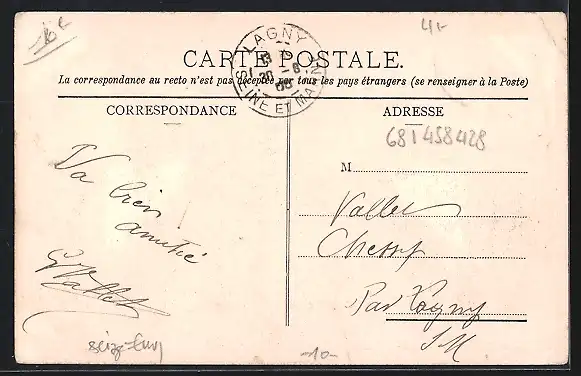 16€
4,-
CARTE POSTALE.
La correspondance au recto n'est pas acceptée par tous les pays étrangers (se renseigner à la Poste)
LAGNY
20 -8
SEINE ET MARNE
CORRESPONDANCE
ADRESSE
681458428
M
Va bien
amitié
G Vallet
Vallet
Chessy
Par Lagny
S M
-10-